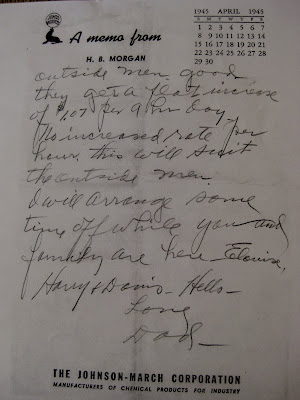 1945 APRIL 1945
S M T W T F S
1 2 3 4 5 6 7
8 9 10 11 12 13 14
15 16 17 18 19 20 21
22 23 24 25 26 27 28
29 30
A memo from
H. B. MORGAN
outside men good
they get a flat increase
of $1.07 per 9 hr day
No increased rate per
hour. this will suit
the outside men
I will arrange some
time off while you and
family are here - Elouise,
Harry & Doris - Hello -
Love
Dad -
THE JOHNSON-MARCH CORPORATION
MANUFACTURERS OF CHEMICAL PRODUCTS FOR INDUSTRY